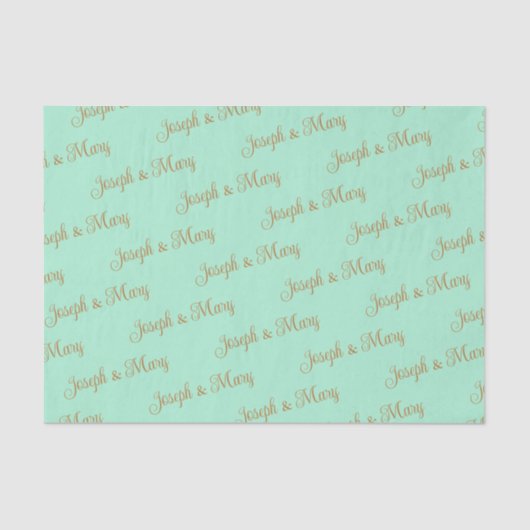 Joseph & Mary
Joseph & Mary
Joseph & Mary
Joseph & Mary
Joseph & Mary
Joseph & Mary
Joseph & Mary
Joseph & Mary
Joseph & Mary
Joseph & Mary
Joseph & Mary
Joseph & Mary
Joseph & Mary
Joseph & Mary
Joseph & Mary
Joseph & Mary
Joseph & Mary